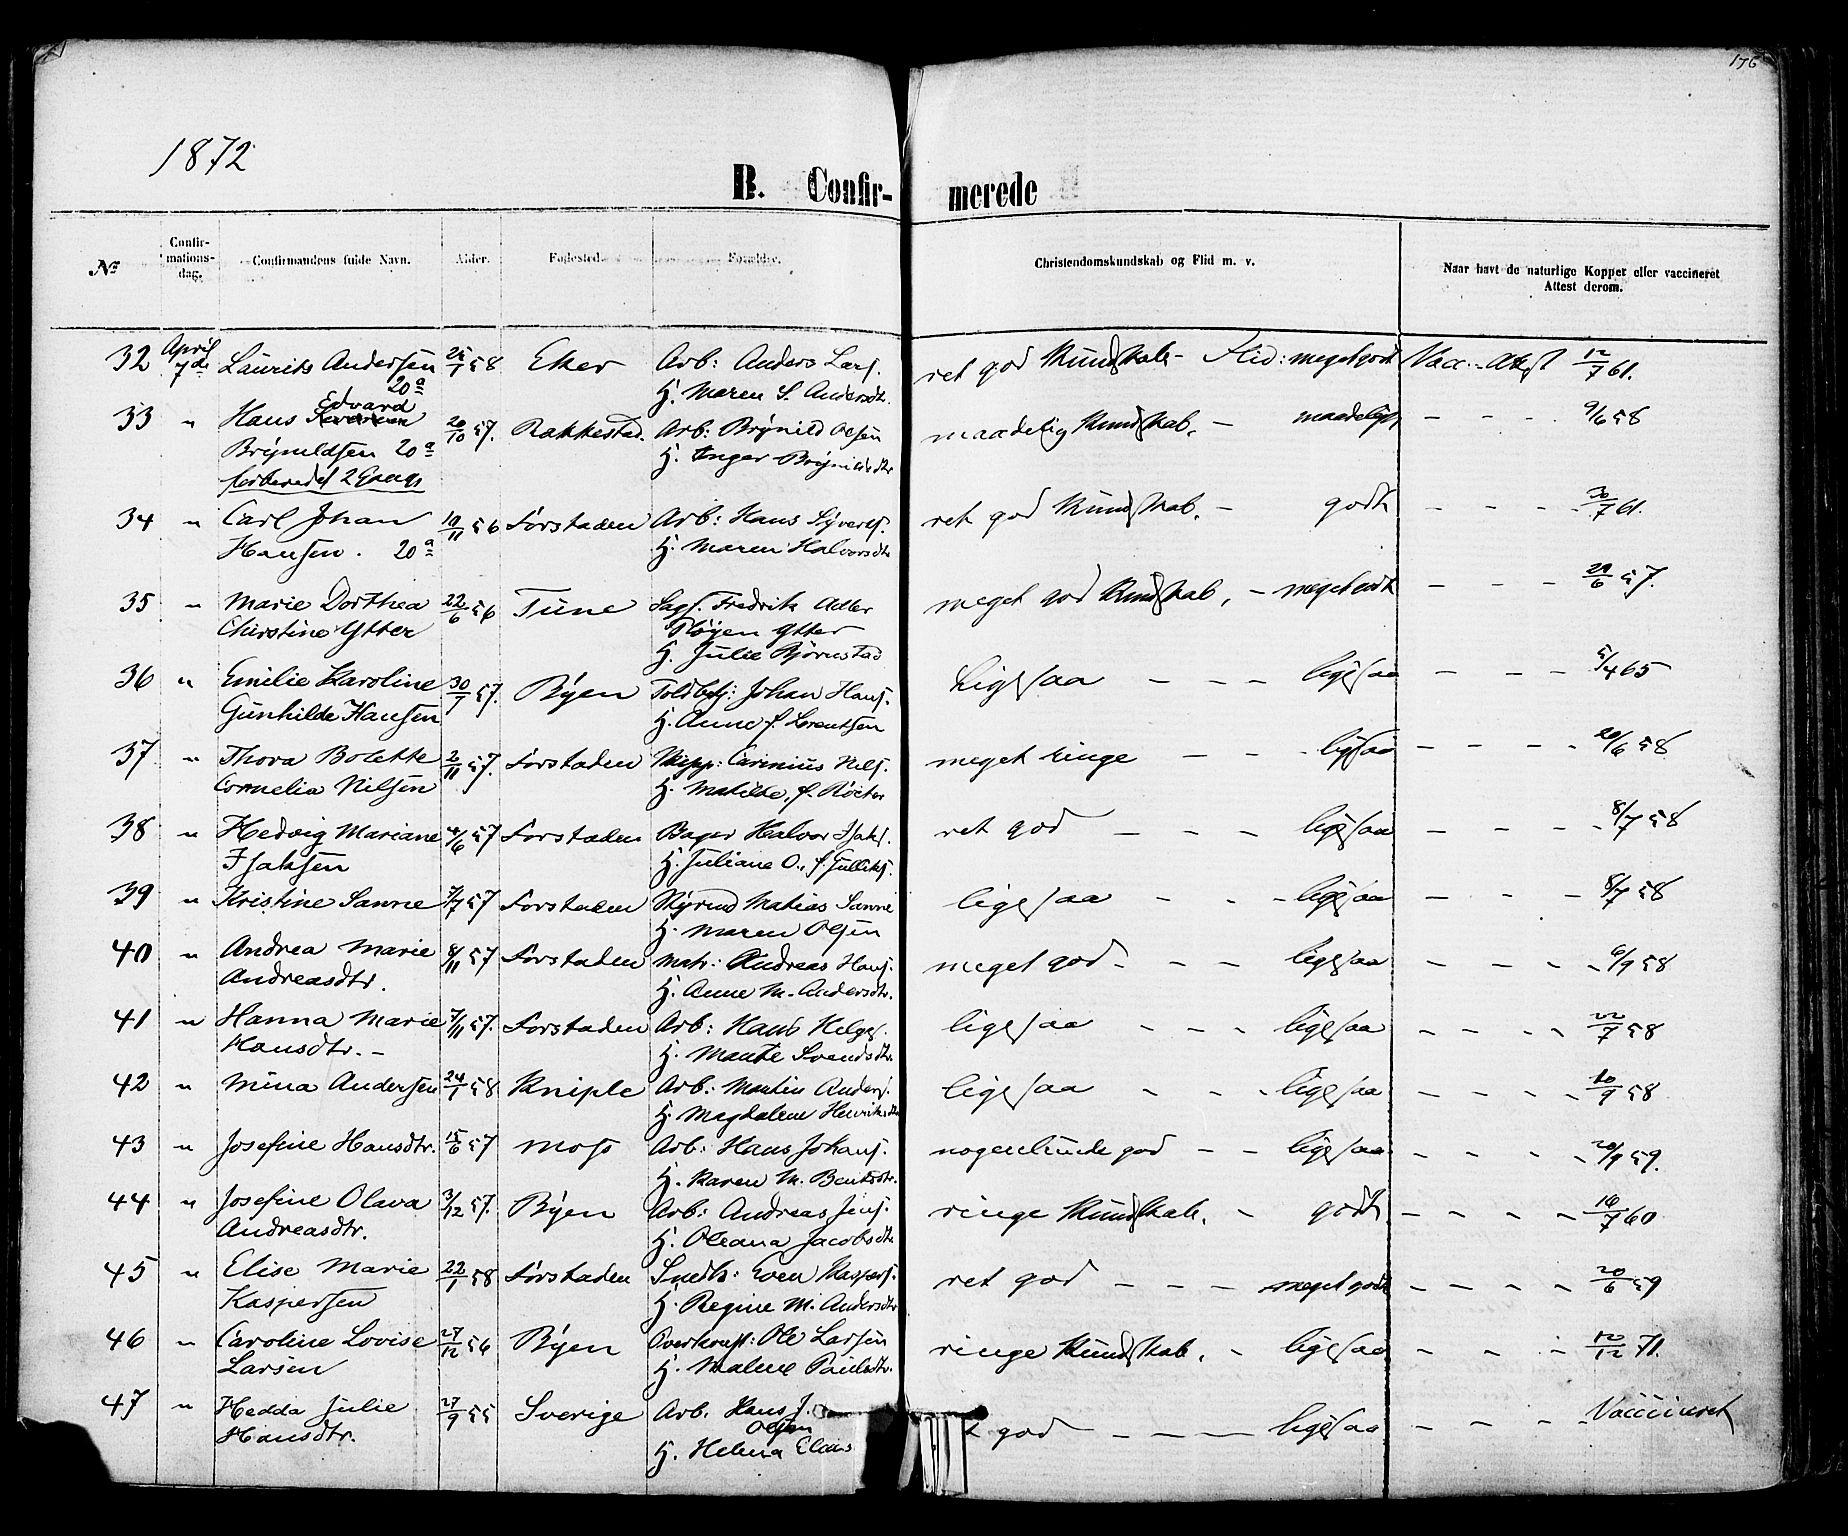 176
1872
B. Confir- merede
No
Confir-
mations-
dag.
Confirmandens fulde Navn.
Alder.
Fødested.
Forældre.
Christendomskundskab og Flid m. v.
Naar havt de naturlige Kopper eller vaccineret
Attest derom.
32 April 7de Laurits Andersen 58 Eker Arb: Anders Lars. ret god Kundskab - Flid: megetgodt Vacc. - Attest 12/7 61.
20a H. Maren S. Andersdtr.
Edvard
33 " Hans 20/10 57. Rakkestad. Arb: Brynild Olsen maadelig Kundskab. - maadelig - - - 9/6 58
Brynildsen 20a H. Inger Brynildsdtr
forberedet 2 Gange
34 " Carl Johan 19/11 56 Forstaden Arb: Hans Syvers. ret god Kundskab. - godt - - - 30/7 61.
Hansen. 20a H. Maren Halvorsdtr
35 " Marie Dorthea 22/6 56 Tune Sagf. Fredrik Adler meget god Kundskab, - meget godt - - - 29/6 57.
Christine Ytter Fløyen Ytter
H. Julie Bjørnstad
36 " Emilie Karoline 30/7 57. Byen Toldbetj: Johan Hans. Ligesaa - - - ligesaa - - - 5/4 65
Gunhilde Hansen H. Anne f. Lorentsen
37 " Thora Bolette 2/11 57. Forstaden Skipp: Carinius Nils. meget ringe - - - ligesaa - - - 20/6 58
Cornelia Nilsen H. Matilde, f.
38 " Hedvig Mariane 57 Forstaden Bager Halvor Isaks. ret god - - - ligesaa - - - 8/7 58
Isaksen H. Juliane O., f. Gulliks.
39 " Kristine Sanne 7/7 57 Forstaden Matias Sanne ligesaa - - - ligesaa - - - 8/7 58
H. Maren Olsen
40 " Andrea Marie 8/11 57 Forstaden Matr: Andreas Hans. meget god - - - ligesaa - - - 6/9 58
Andreasdtr. H. Anne M. Andersdtr.
41 " Hanna Marie 7/11 57. Forstaden Arb: Hans Helges. ligesaa - - - ligesaa - - - 22/7 58
Hansdtr. - H. Svendsdtr.
42 " Mina Andersen 24/1 58 Kniple Arb: Martin Anders. ligesaa - - - ligesaa - - - - 10/9 58
H. Magdalene Henriksdtr
43 " Josefine Hansdtr. 15/6 57 Moss Arb: Hans Johans. nogenlunde god - - ligesaa - - - - 20/9 59.
H. Karen M. Bentsdtr.
44 " Josefine Olava 3/12 57. Byen Arb: Andreas Jens. ringe Kundskab. - godt. - - - - 16/7 60
Andreasdtr. H. Oleana Jacobsdtr
45 " Elise Marie 22/1 58 Forstaden Snedk: Even Kaspers. ret god - - - meget godt - - - - 20/6 59
Kaspersen H. Regine M. Andersdtr
46 " Caroline Lovise 27/12 56 Byen Overkonst: Ole Larsen ringe Kundskab. - ligesaa - - - 12/12 71.
Larsen H. Malene Paulsdtr.
47 " Hedda Julie 27/9 55 Sverige Arb. Hans J. god - - - ligesaa - - - Vaccineret
Hansdtr. Olsen
H. Helena Elias